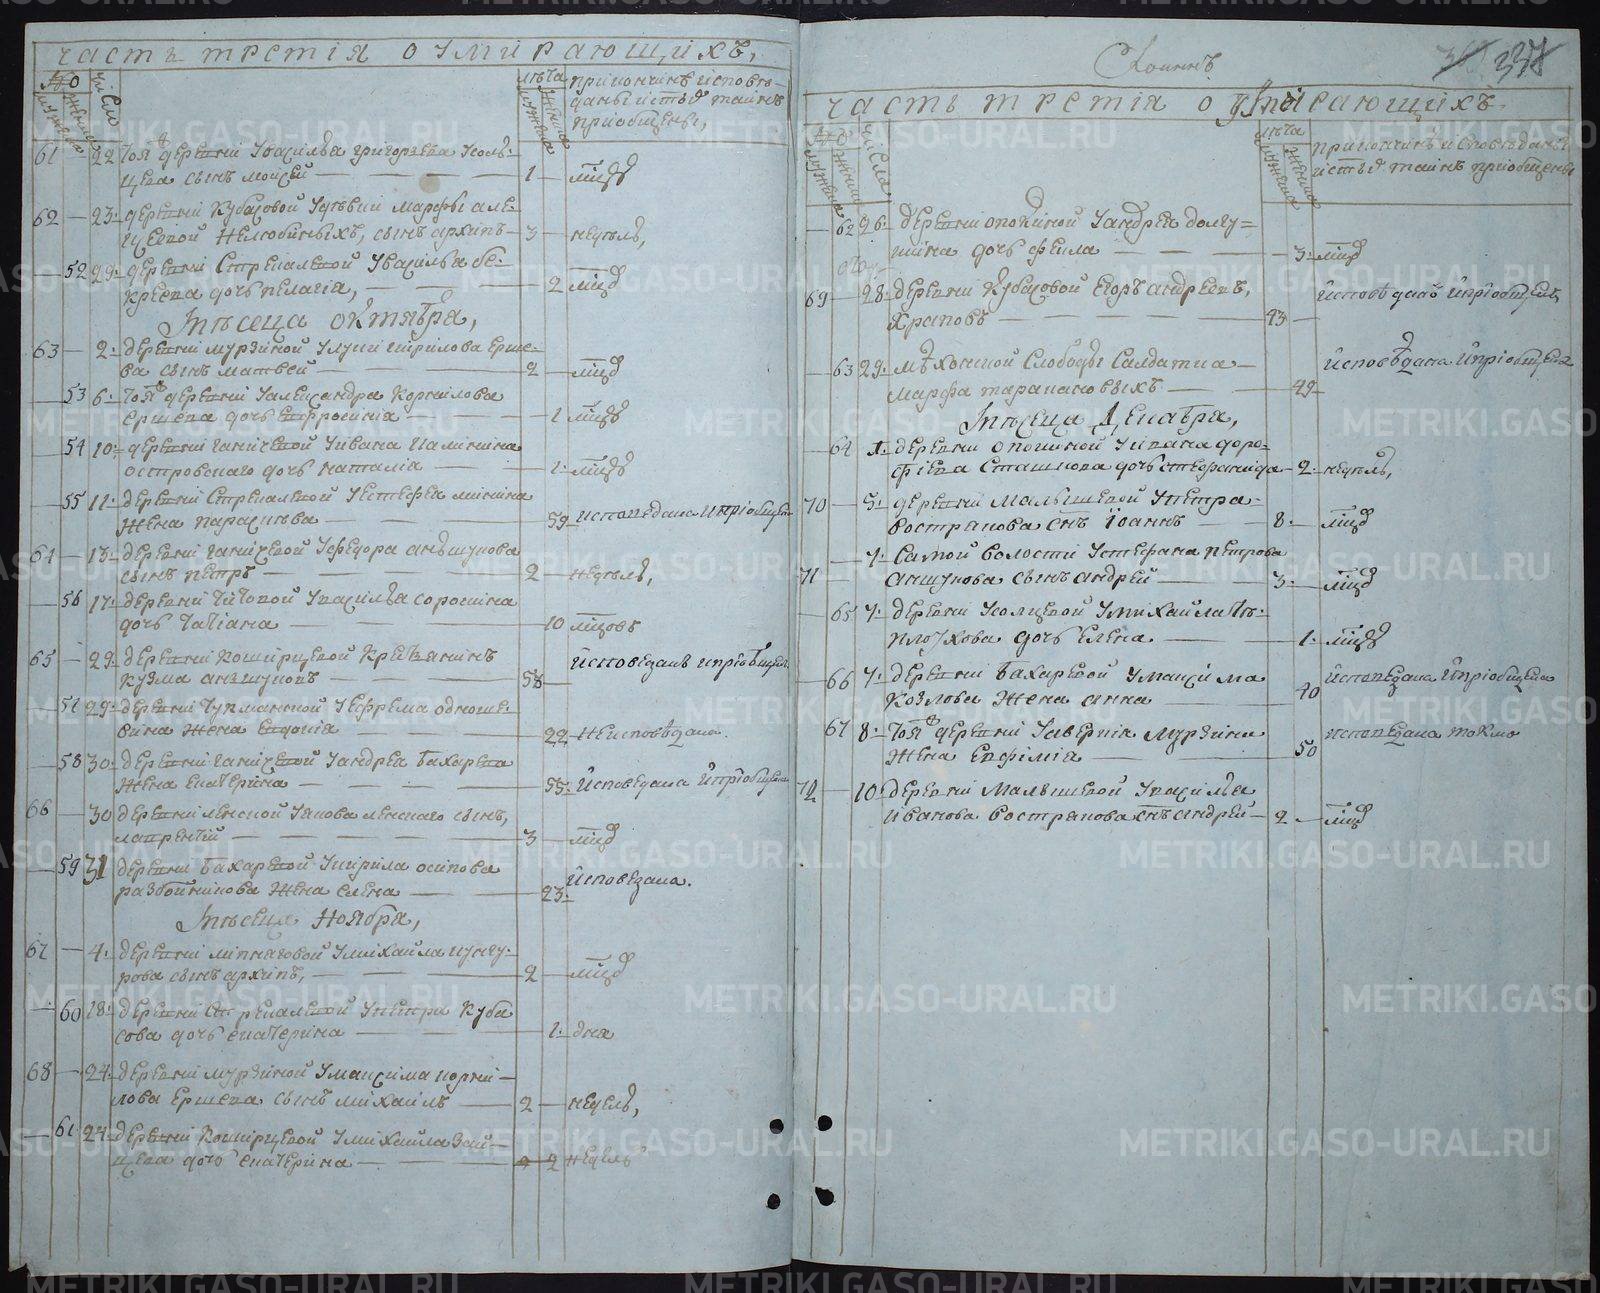 часть третія о умирающихъ,
№
число
мужеска
женска
лѣта
мужеска
женска
приконченѣ исповѣ-
даны и стых таинъ
приобщены,
61 22 тоя деревни у василья григорьева усоль-
цева сынъ моисей 1 мцъ
62 23: деревни Кубасовой у девки марфы але-
цеевой нелюбиныхъ, сынъ архипъ 3 недѣль,
52 29: деревни Стрекаловой у василья бе-
креева дочь пелагіа, 2 мцд
Мѣсеца октября,
63 2: деревни мурзиной у луки кирилова ерше-
ва сынъ матвей 2 мцд
53 6: тоя деревни у александра корнилова
ершева дочь ефросиніа 1 мцъ
54 10: деревни ганичевой у ивана калинина
островскаго дочь наталіа 1: мцъ
55 11: деревни Стрекаловой у стефея минина
жена парасковья 59 исповедана и пріобщен
64 13: деревни ганичевой у федора аншукова
сынъ петръ 2 недѣль,
56 17: деревни титовой у василья сорокина
дочь татіана 10 мцовъ
65 29: деревни кокшарцевой крестьянинъ
кузма аншуковъ 58 исповеданъ и пріобщенъ
51 29: деревни чупманской у ефрема одноше-
вина жена евдокіа 22 неисповѣдана.
58 30: деревни ганичевой у андрея бахарева
жена екатерина 55: исповедана и пріобщена
66 30 деревни ленской у якова ленскаго сынъ,
лаврентій 3 мцд
59 31 деревни бахаревой у кирила осипова
разбойникова жена елена 23: исповедана.
Мѣсеца Ноября,
67 4: деревни липняговой у михаила кунгу-
рова сынъ архипъ, 2 мцд
60 18: деревни стрекаловой у петра куба
сова дочь екатерина 1: дня
68 24: деревни мурзиной у максима корни-
лова ершева сынъ михаилъ 2 недель,
61 27 деревни кокшарцевой у михаила зай-
цева дочь екатерина 2 недель
378
часть третія о умирающихъ.
№
числа
мужеска
женска
лѣта
мужеска
женска
приконченѣ исповѣданы
и стых таинъ приобщены
62 26: деревни опокиной у андрея долгу-
шина дочь фекла 3: мцд
69 28: деревни кубасовой егоръ андреевъ,
храповъ 43 исповѣданъ и пріобщенъ
63 29: мѣхонской слободы салдатка
марфа таранановыхъ 49 исповѣдана и пріобщена
Мѣсеца Декабря,
64 1: деревни опокиной у ивана доро-
фѣева сташкова дочь стефанида 2: недѣль,
70 5: деревни малышевой у петра
вострякова снъ іоаннъ 8: мцд
71 7: самой волости у стефана петрова
аншукова сынъ андрей 3: мцд
65 7: деревни усолцевой у михайла пѣ-
плоухова дочь елена 1: мцъ
66 7: деревни бахаревой у максима
козлова жена анна 70 исповедана и пріобщена
67 8: тоя деревни у аверкія мурзина
жена евфиміа 50 исповедана токмо
72 10: деревни малышевой у василья
иванова вострякова снъ андрей 2 мцд
METRIKI.GASO-URAL.RU